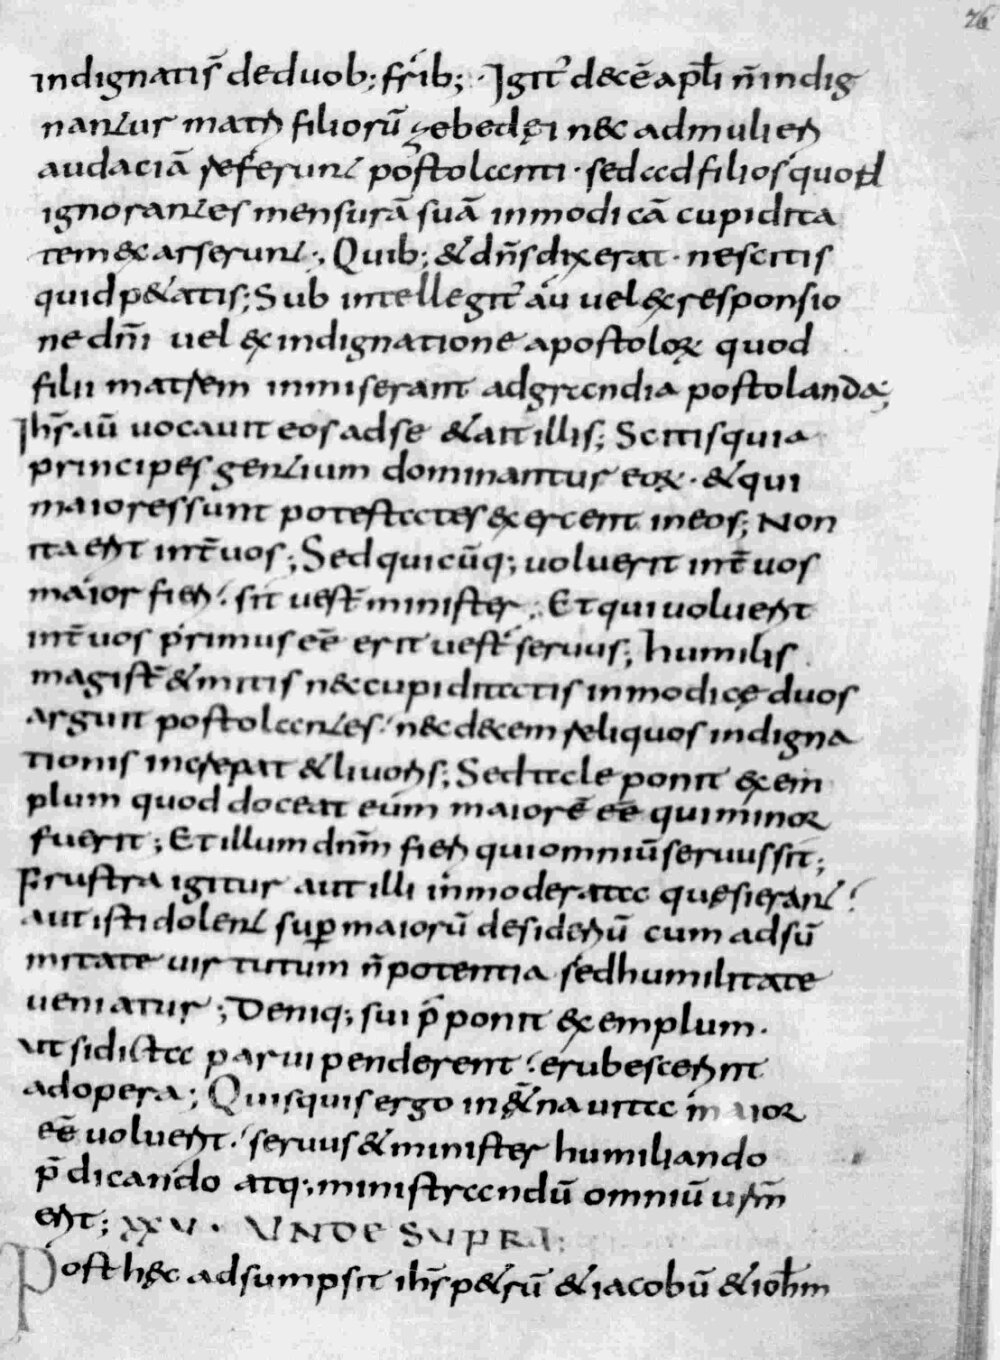 76
indignatis̄ deduob; fr̄ib; · Igit᷒ decē apl̄i n̄ indig
nantur mat̄r filiorū zebedęi nec admulier̄
audaciā referunt postolanti · sed ad filios quod
ignorantes mensurā suā inmodicā cupidita
tem exarserunt ; Quib; & dn̄s dixerat · nescitis
quid p&atis; Sub intellegit᷒ aū uel ex responsio
ne dn̄i uel ex indignatione apostoloꝝ quod
filii matrem inmiserant adgrandia postolanda;
Ih̄s aū uocauit eos ad se & ait illis; Scitis quia
principes gentium dominantur eoꝝ · & qui
maiores sunt potestates exercent in eos; Non
ita er̄t int̄ uos ; Sed quicūq; uoluerit int̄ uos
maior fier̄ sit uest̄ minister ; Et qui uoluer̄t
int̄ uos primus eē erit uest̄ seruus; humilis
magist̄ & mitis nec cupiditatis inmodicę duos
arguit postolantes nec decem reliquos indigna
tionis increpat & liuor̄s; Sed tale ponit exem
plum quod doceat eum maiorē eē qui minor
fuerit ; Et illum dn̄m fier̄ qui omniū seruus sit;
Frustra igitur aut illi inmoderata quęsierant
aut isti dolent sup̱ maiorū desider̄ū cum ad sū
mitate uirtutum n̄ potentia sed humilitate
ueniatur ; Deniq; sui p̄ponit exemplum ·
ut si dicta parui penderent erubescer̄nt
ad opera ; Quisquis ergo in &̄na uita maior
eē uoluer̄t seruus & minister humiliando
p̄dicando atq; ministrandū omniū urm̄
er̄t; XXV · UNDE SUPRA;
Post hęc adsumpsit ih̄s p&rū & iacobū & ioh̄m